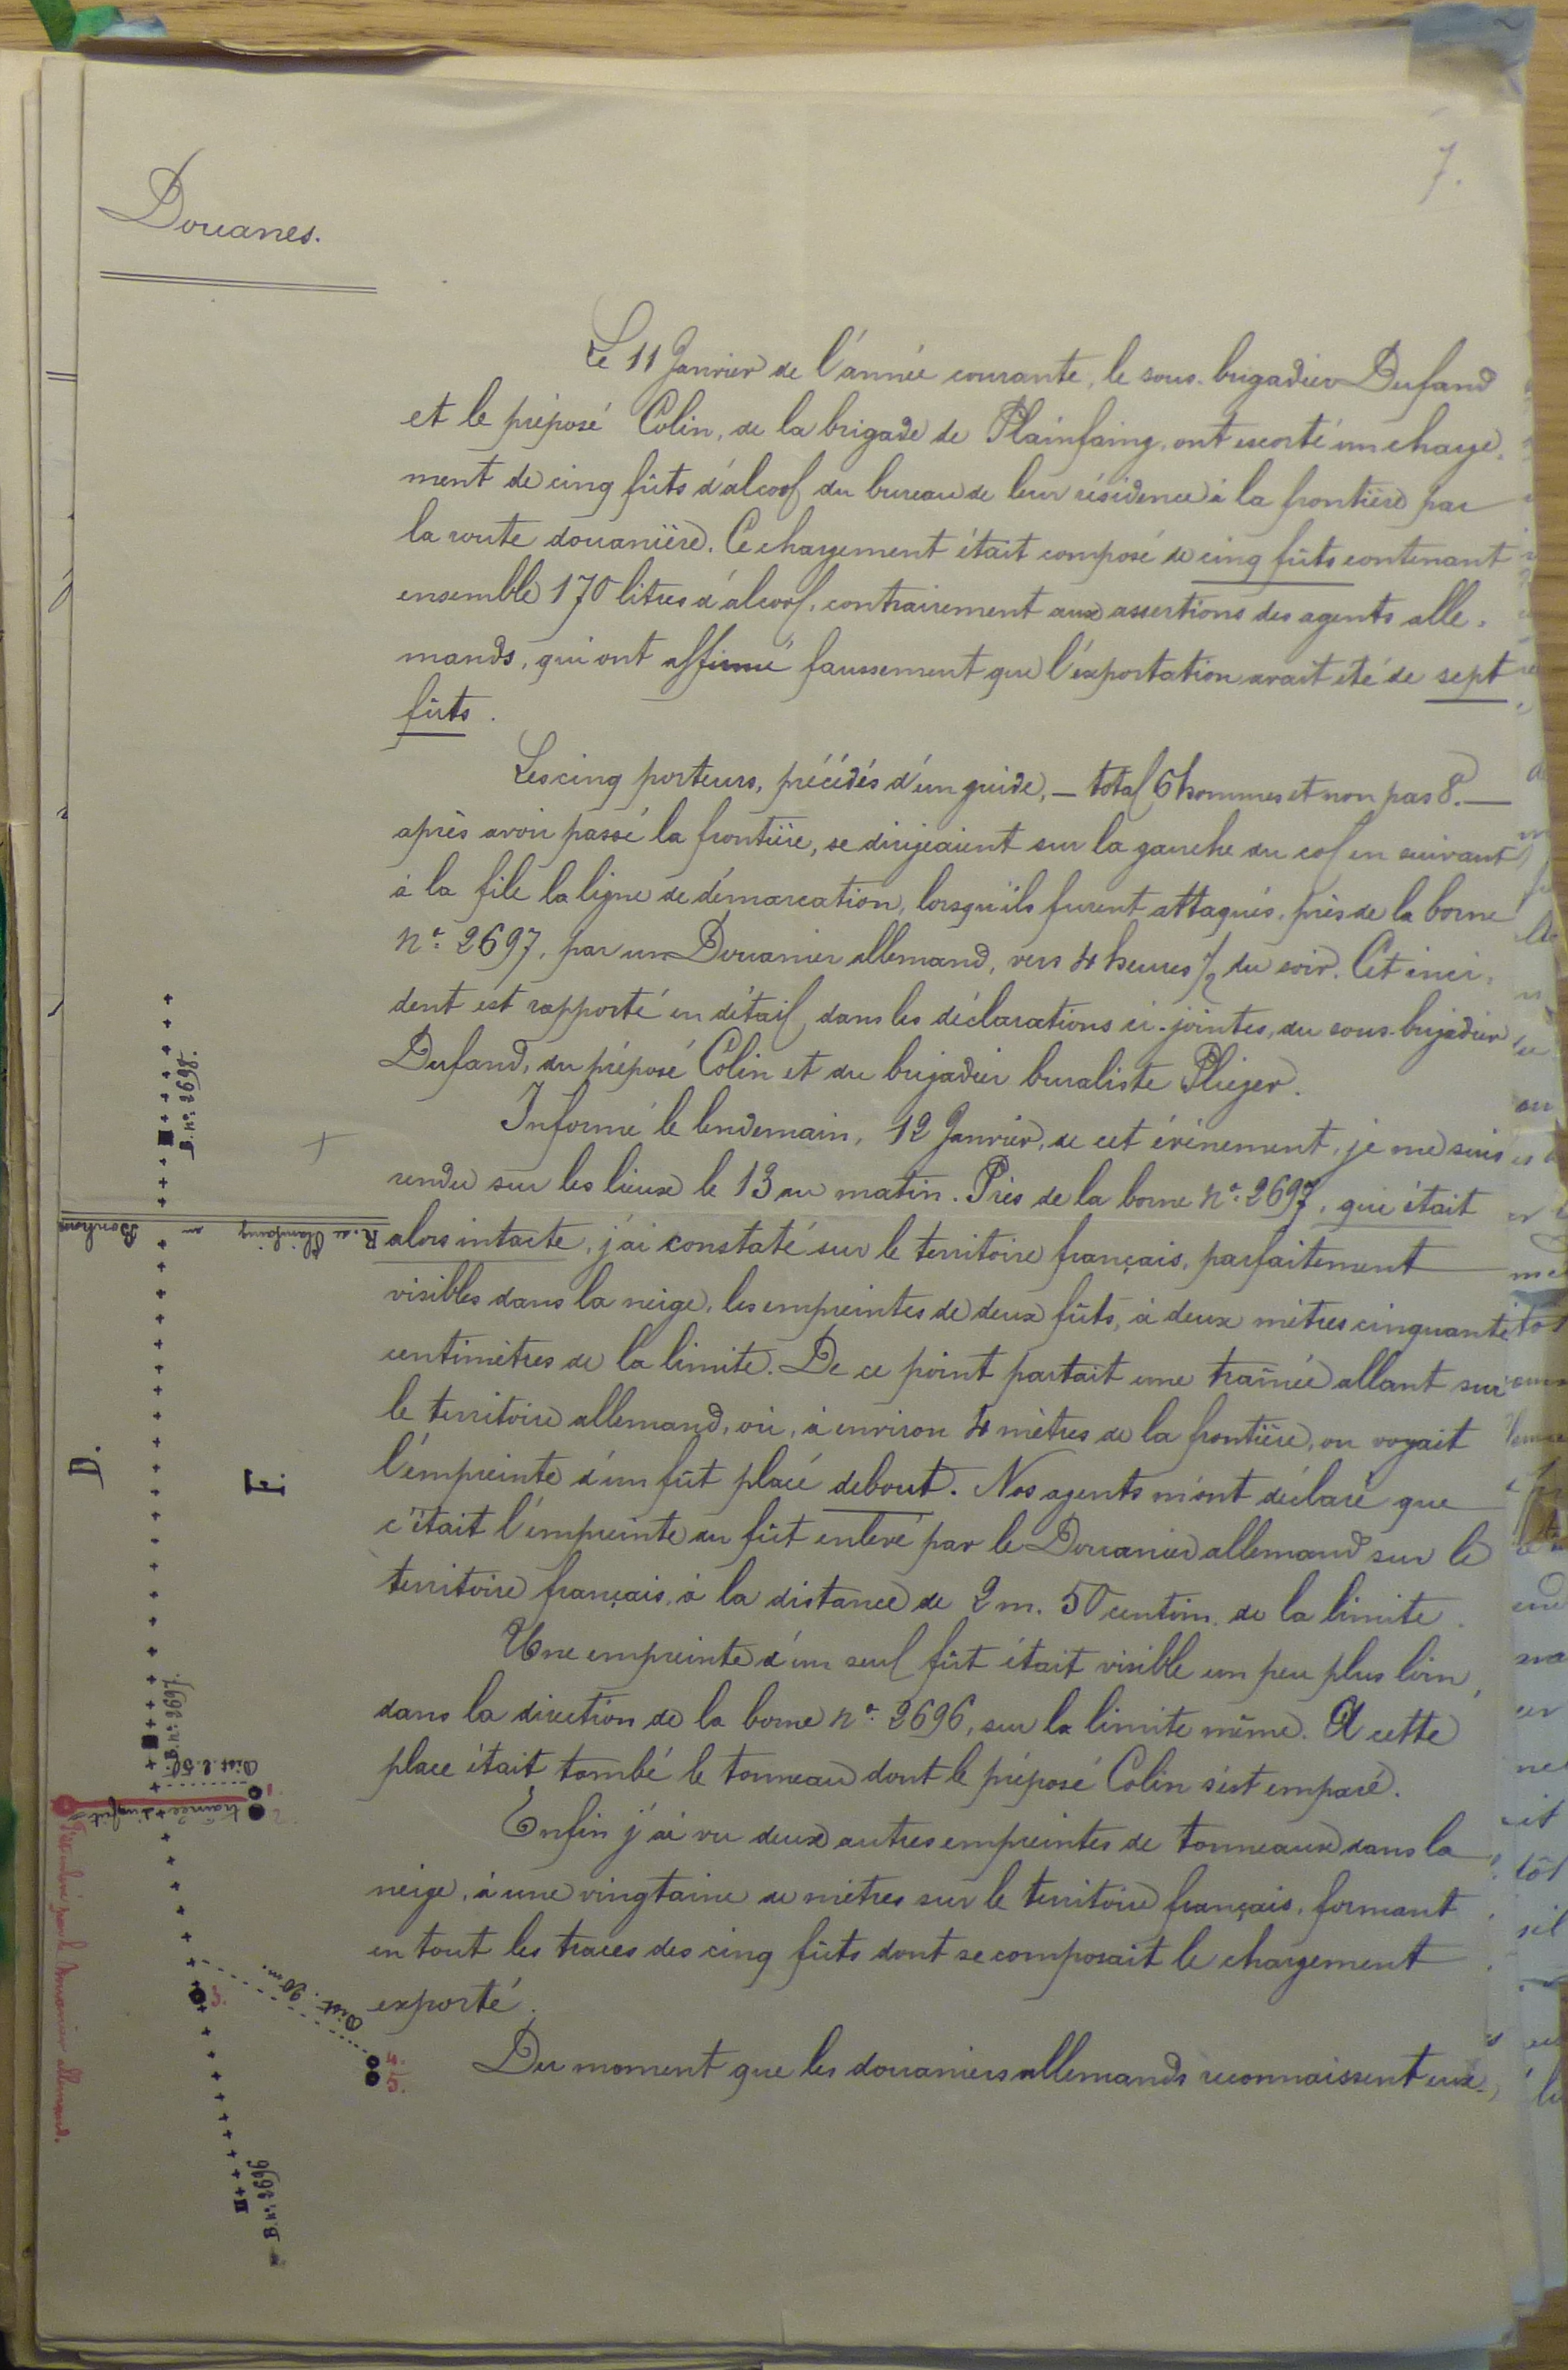 7.
Douanes.
Le 11 Janvier de l'année courante, le sous-brigadier Dufand
et le préposé Colin, de la brigade de Plainfaing, ont escorté un charge-
ment de cinq fûts d'alcool du bureau de leur résidence à la frontière par
la route douanière. Ce chargement était composé de cinq fûts contenant
ensemble 170 litres d'alcool, contrairement aux assertions des agents alle-
mands, qui ont affirmé faussement que l'exportation avait été de sept
fûts.
Les cinq porteurs, précédés d'un guide, — total 6 hommes et non pas 8. —
après avoir passé la frontière, se dirigeaient sur la gauche du col en suivant
à la file la ligne de démarcation, lorsqu'ils furent attaqués, près de la borne
N° 2697, par un Douanier allemand, vers 4 heures ½ du soir. Cet inci-
dent est rapporté en détail dans les déclarations ci-jointes, du sous-brigadier
Dufand, du préposé Colin et du brigadier buraliste Plieger.
Informé le lendemain, 12 Janvier, de cet événement, je me suis
rendu sur les lieux le 13 au matin. Près de la borne N° 2697, qui était
alors intacte, j'ai constaté sur le territoire français, parfaitement
visibles dans la neige, les empreintes de deux fûts, à deux mètres cinquante
centimètres de la limite. De ce point partait une traînée allant sur
le territoire allemand, où, à environ 4 mètres de la frontière, on voyait
l'empreinte d'un fût placé debout. Nos agents m'ont déclaré que
c'était l'empreinte du fût enlevé par le Douanier allemand sur le
territoire français, à la distance de 2 m. 50 centim. de la limite.
Une empreinte d'un seul fût était visible un peu plus loin,
dans la direction de la borne N° 2696, sur la limite même. A cette
place était tombé le tonneau dont le préposé Colin s'est emparé.
Enfin j'ai vu deux autres empreintes de tonneaux dans la
neige, à une vingtaine de mètres sur le territoire français, formant
en tout les traces des cinq fûts dont se composait le chargement
exporté.
Du moment que les douaniers allemands reconnaissent eux-
B. N° 2698.
R. de Plainfaing au Bonhomme
D.
F.
B. N° 2697.
Dist. 2.50.
1.
2.
traînée d'un fût
Fût tombé par le Douanier allemand.
3.
Dist. 20 m.
4.
5.
B. N° 2696